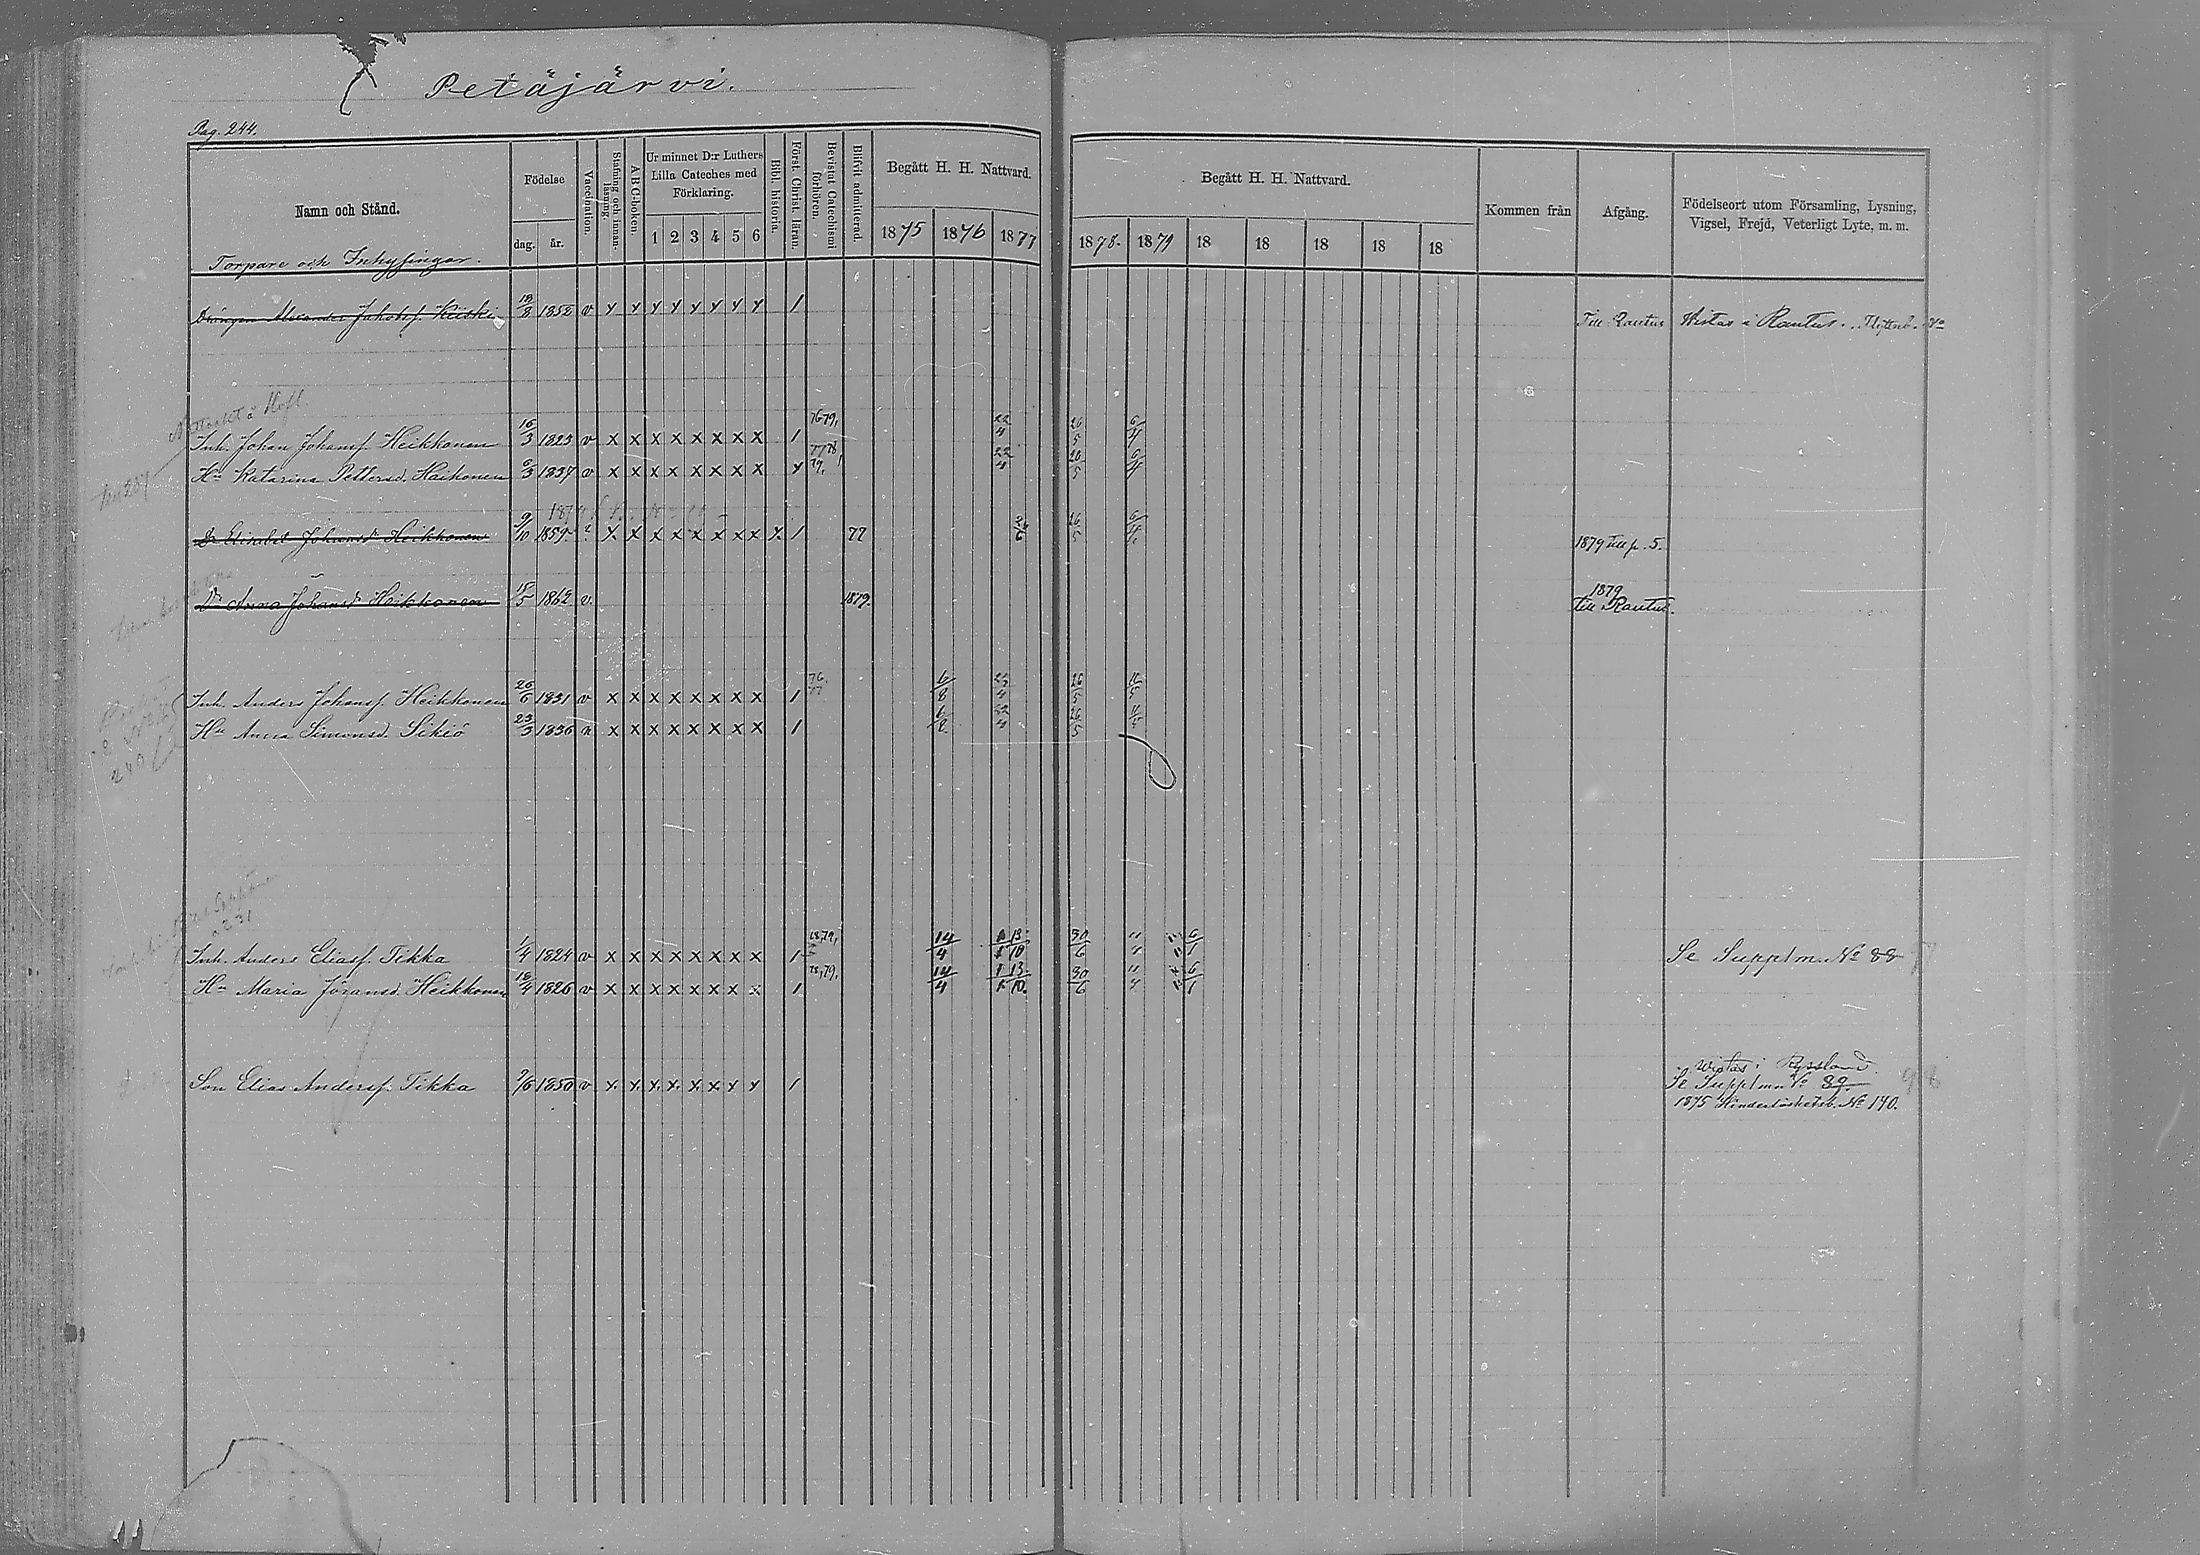 Petäjärvi.
Pag. 244.
Namn och Stånd.
Födelse
dag. år.
Vaccination.
Stafning och innan-läsning.
A B C-boken.
Ur minnet D:r Luthers Lilla Cateches med Förklaring.
1 2 3 4 5 6
Bibl. historia.
Först. Christ. läran.
Bevistat Catechismi förhören.
Blifvit admitterad.
Begått H. H. Nattvard.
1875 1876 1877
Begått H. H. Nattvard.
1878. 1879 18 18 18 18 18
Kommen från
Afgång.
Födelseort utom Församling, Lysning, Vigsel, Frejd, Veterligt Lyte, m. m.
Torpare och Inhysingar.
Drängen Alexander Jakobsf. Kiiski 18/8 1852 v y y y y y y y y 1 Till Rautus Vistas i Rautus.
Inh. Johan Johansf. Heikkonen 16/3 1823 v x x x x x x x x 1 76 79, 22/4 26/5 6/4
Hu Katarina Pettersd. Haikonen 6/3 1837 v x x x x x x x x y 77 78 79, 22/4 26/5 6/4
Dr Elisabet Johansdr Heikkonen 9/10 1859 x x x x x x x x x 1 77 26/5 1879 till p. 5.
Dr Anna Johansd Heikkonen 1862 v. 1879. 1879 till Rautus.
Inh. Anders Johansf. Heikkonen 26/6 1831 v x x x x x x x x 1 76, 77 6/8 23/4 26/5 11/5
Hu Anna Simonsd. Sikiö 23/3 1836 v x x x x x x x x 1 6/8 22/4 26/5 11/5
Inh. Anders Eliasf. Tikka 1/4 1824 v x x x x x x x x 1 78,79, 14/4 13/10 30/6 6/1 Se Supplm. No 88
Hu Maria Jöransd. Heikkonen 18/4 1826 v x x x x x x x x 1 78,79, 14/4 13/10. 30/6 6/1
Son Elias Andersf. Tikka 7/6 1850 v x x x x x x y y 1
Vistas i Ryssland.
Se Supplm No 89.
1875 Hinderlöshetsb. No 140.